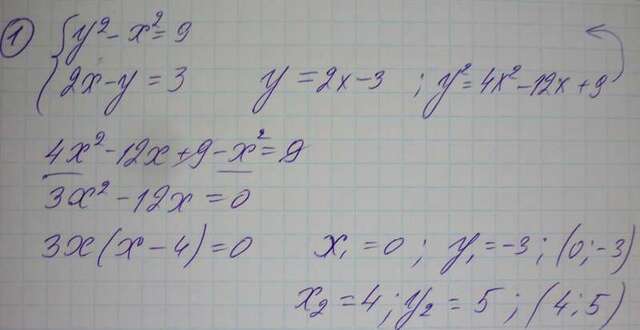 1 { y² - x² = 9
2x - y = 3 y = 2x - 3 ; y² = 4x² - 12x + 9
4x² - 12x + 9 - x² = 9
3x² - 12x = 0
3x(x - 4) = 0 x₁ = 0 ; y₁ = -3 ; (0; -3)
x₂ = 4 ; y₂ = 5 ; (4; 5)